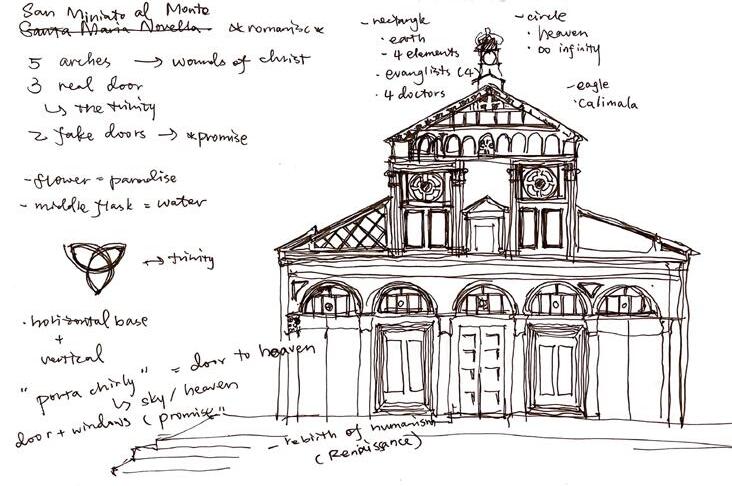 San Miniato al Monte
Santa Maria Novella
5 arches → wounds of christ
3 real door
↳ the trinity
2 fake doors → *promise
- flower = paradise
- middle flask = water
→ trinity
· horizontal base
+
vertical
= door to heaven
"porta
↳ sky / heaven
door + windows (promise"
- rectangle
· earth
- 4 elements
· evanglists (4)
· 4 doctors
- circle
· heaven
· ∞ infinity
- eagle
· Calimala
- rebirth of humanism
(Renaissance)